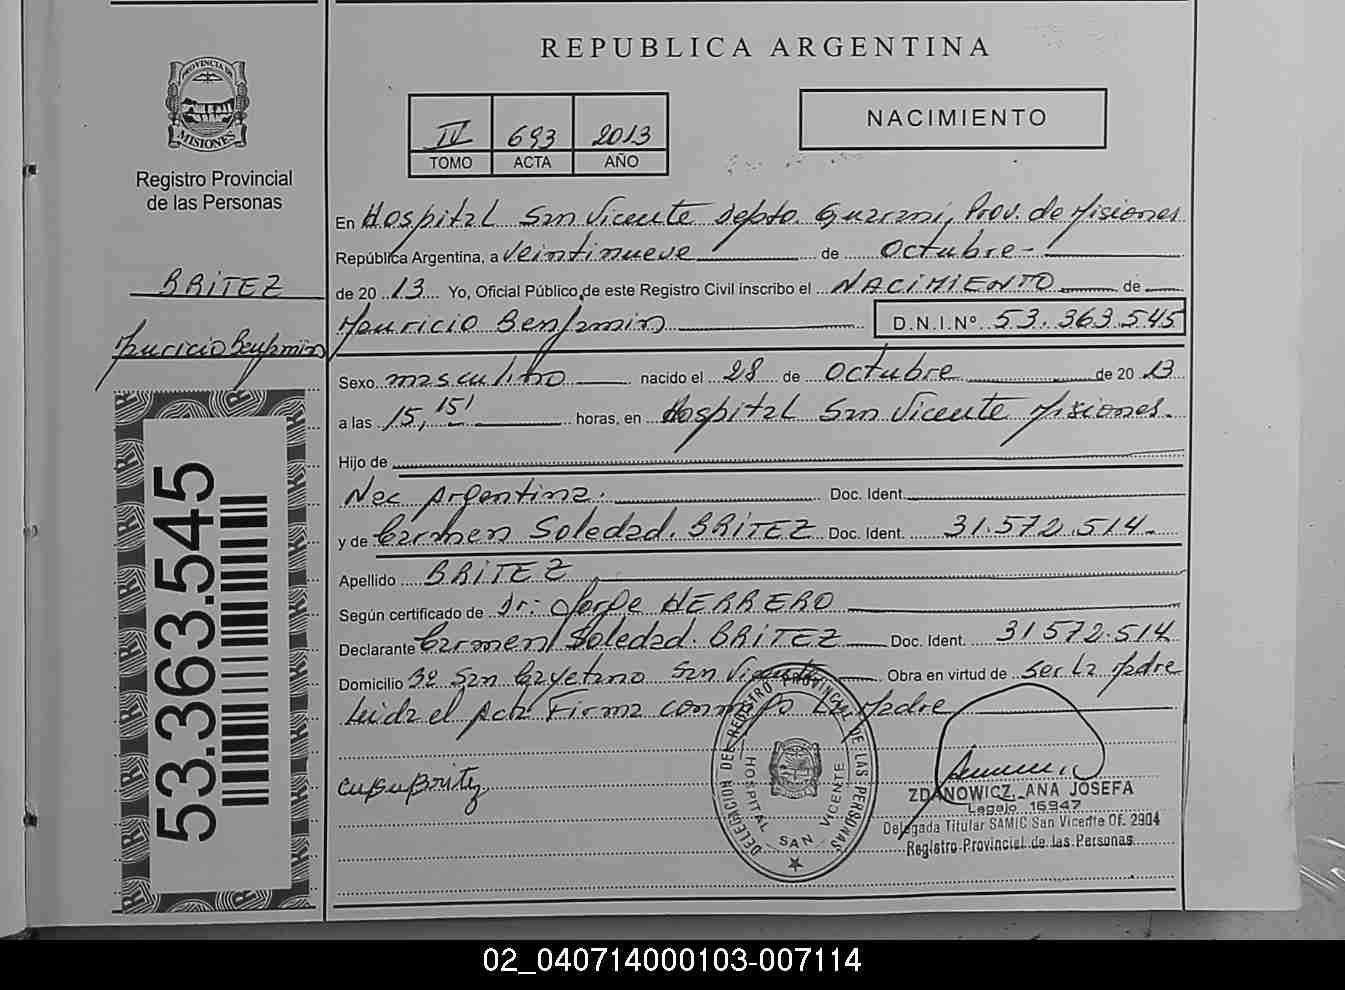 REPUBLICA ARGENTINA
PROVINCIA DE
MISIONES
Registro Provincial
de las Personas
IV 693 2013
TOMO ACTA AÑO
NACIMIENTO
BRITEZ
Mauricio Benjamin
53.363.545
En Hospital San Vicente Depto. Guarani, Prov. de Misiones
República Argentina, a veintinueve de Octubre-
de 20 13 Yo, Oficial Público de este Registro Civil inscribo el NACIMIENTO de
Mauricio Benjamin D.N.I.Nº 53.363.545
Sexo masculino nacido el 28 de Octubre de 20 13
a las 15,15' horas, en Hospital San Vicente Misiones.
Hijo de
Nac Argentina. Doc. Ident.
y de Carmen Soledad. BRITEZ Doc. Ident. 31.572.514-
Apellido BRITEZ
Según certificado de Dr: Jorge HERRERO
Declarante Carmen Soledad. BRITEZ Doc. Ident. 31572.514
Domicilio Bº San Cayetano San Vicente Obra en virtud de Ser La Madre
Leida el Acta Firma conmigo La Madre
DELEGACION DEL REGISTRO PROVINCIAL DE LAS PERSONAS
HOSPITAL SAN VICENTE
ZDANOWICZ, ANA JOSEFA
Legajo 16947
Delegada Titular SAMIC San Vicente Of. 2904
Registro Provincial de las Personas
02_040714000103-007114